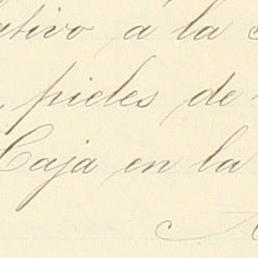 ativo a la
pieles de
Caja en la